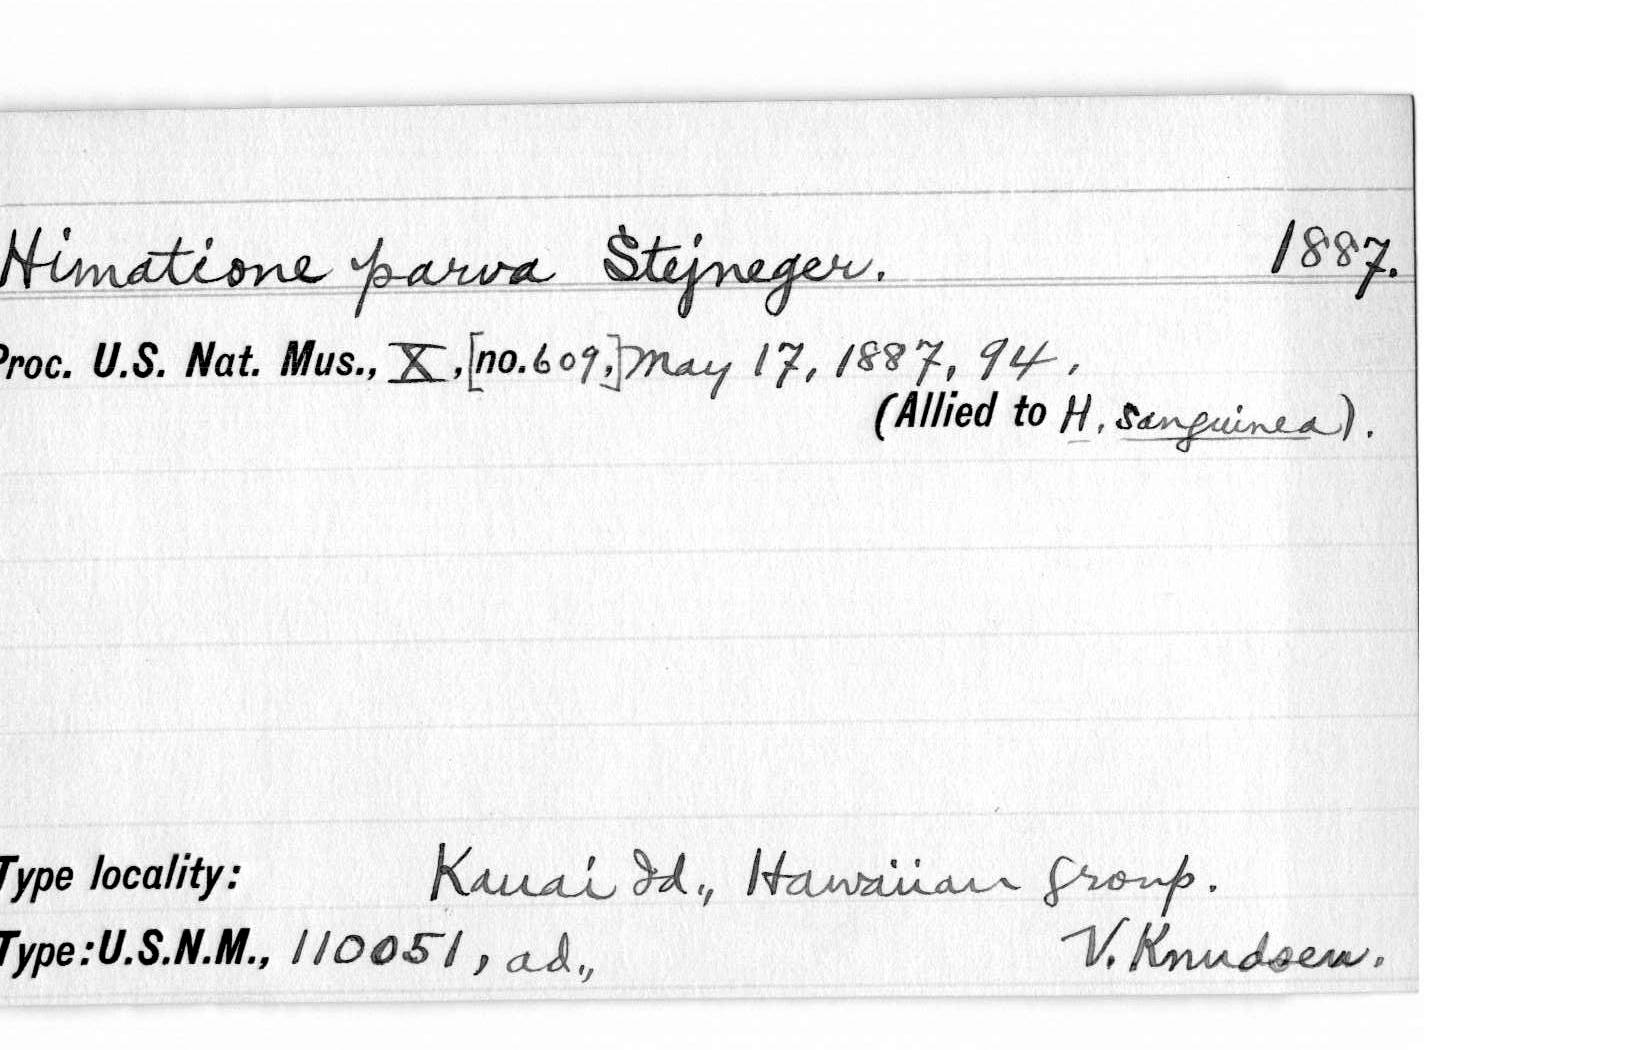 Himatione parva Stejneger. 1887.
Proc. U.S. Nat. Mus., X, [no. 609,] May 17, 1887, 94,
(Allied to H. sanguinea).
Type locality: Kauai Id., Hawaiian group.
Type: U.S.N.M., 110051, ad., V. Knudsen.